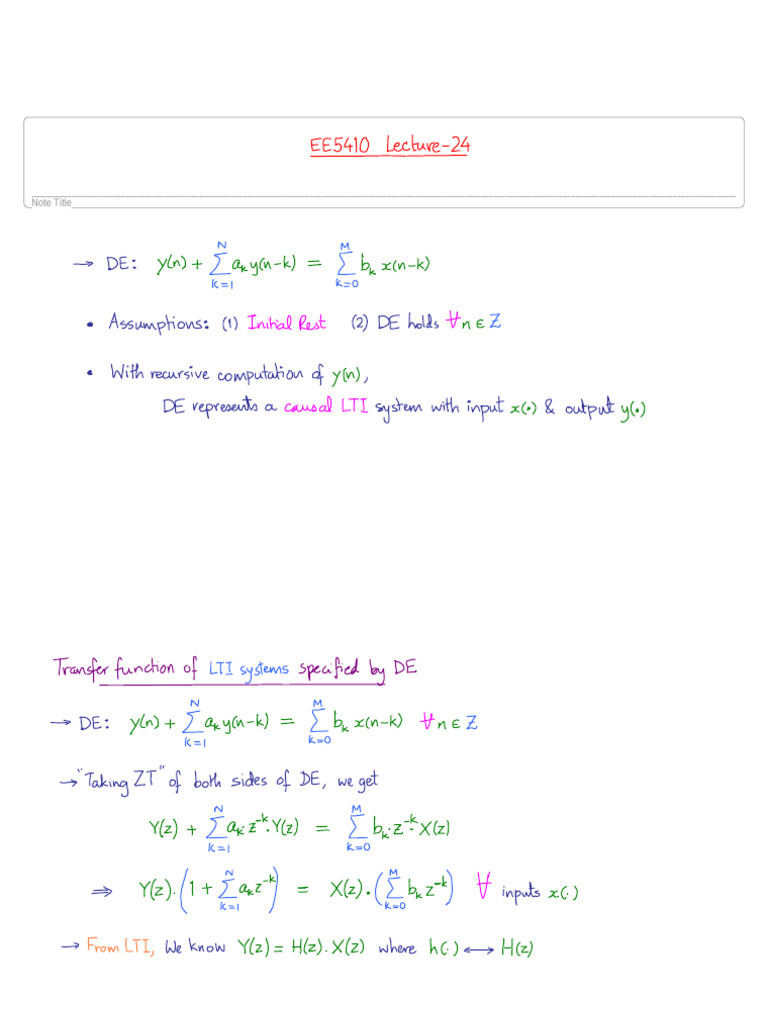 EE5410 Lecture-24
Note Title
→ DE: y(n) + ∑_{k=1}^{N} a_k y(n-k) = ∑_{k=0}^{M} b_k x(n-k)
• Assumptions: (1) Initial Rest (2) DE holds ∀ n ∈ Z
• With recursive computation of y(n),
DE represents a causal LTI system with input x(•) & output y(•)
Transfer function of LTI systems specified by DE
→ DE: y(n) + ∑_{k=1}^{N} a_k y(n-k) = ∑_{k=0}^{M} b_k x(n-k) ∀ n ∈ Z
→ "Taking ZT" of both sides of DE, we get
Y(z) + ∑_{k=1}^{N} a_k·z^{-k}·Y(z) = ∑_{k=0}^{M} b_k·z^{-k}·X(z)
⇒ Y(z)·(1 + ∑_{k=1}^{N} a_k z^{-k}) = X(z)·(∑_{k=0}^{M} b_k z^{-k}) ∀ inputs x(·)
→ From LTI, We know Y(z) = H(z)·X(z) where h(·) ⟷ H(z)